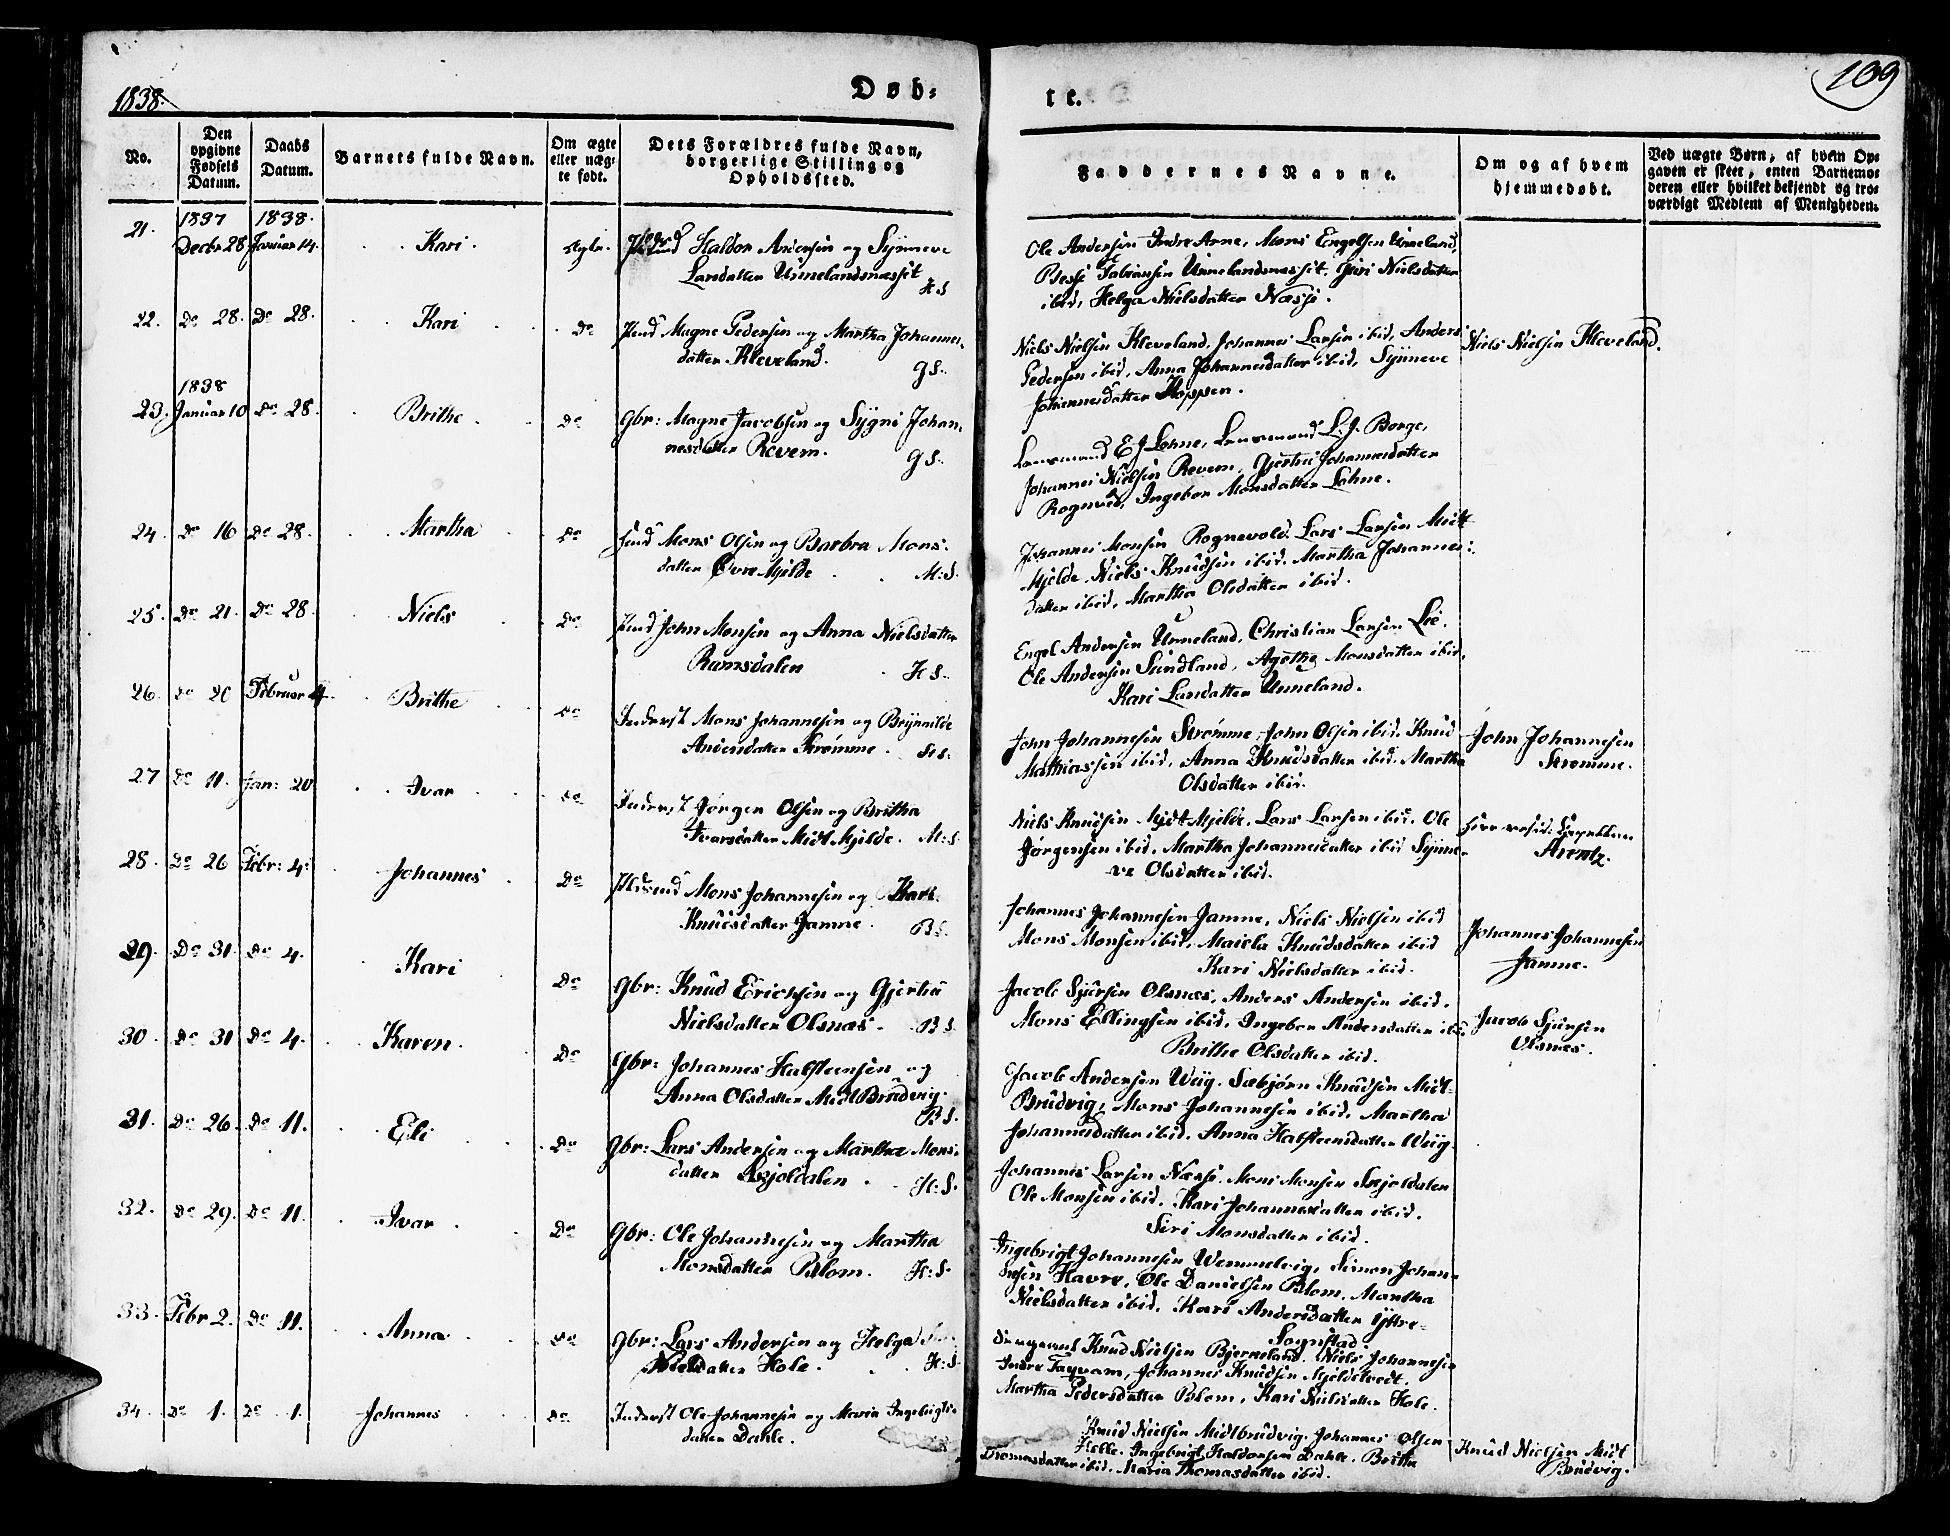 1838.
Døb-
te.
109
No.
Den opgivne Fødsels Datum.
Daabs Datum.
Barnets fulde Navn.
Om ægte eller uæg- te født.
Dets Forældres fulde Navn, borgerlige Stilling og Opholdssted.
Faddernes Navne.
Om og af hvem hjemmedøbt.
Ved uægte Børn, af hvem Op- gaven er skeet, enten Barnemo- deren eller hvilket bekjendt og tro- værdigt Medlem af Menigheden.
21. 1837 Decbr 28 1838. Januar 14. Kari. Ægte.
Haldor Andersen og Synneve
Larsdatter Unnelandsnæsset
H.S
Ole Andersen Indre Arne, Mons Engelsen Unneland,
Fabiansen Unnelandsnæsset, Guri Nielsdatter
ibid, Helga Nielsdatter Næsse.
22. Do 28. Do 28. Kari Do
Magne Pedersen og Martha Johannes-
datter Kleveland.
G S.
Niels Nielsen Kleveland, Johannes Larsen ibid, Anders
Pedersen ibid, Anna Johannesdatter ibid, Synneve
Johannesdatter Hoppen.
Niels Nielsen Kleveland.
23. 1838 Januar 10 Do 28. Brithe Do
Gbr: Magne Jacobsen og Sygni Johan-
nesdatter Revem.
G S.
Lensmand E J Lohne, Lensmand L. J. Borge,
Johannes Nielsen Revem, Gjertru Johannesdatter
Rognved, Ingebor Monsdatter Lohne.
24. Do 16 Do 28. Martha Do
Mons Olsen og Barbra Mons-
datter Øvre Mjelde
M:S.
Johannes Monsen Rognevold. Lars Larsen Midt
Mjelde, Niels Knudsen ibid. Martha Johannes-
datter ibid, Martha Olsdatter ibid.
25. Do 21. Do 28. Niels Do
John Monsen og Anna Nielsdatter
Ramsdalen
H S.
Engel Andersen Unneland, Christian Larsen Lie,
Ole Andersen Sundland, Agethe Monsdatter ibid,
Kari Larsdatter Unneland.
26. Do 20 Februar 4 Brithe Do
Inderst Mons Johannesen og Brynnilde
Andersdatter Strømme.
John Johannesen Strømme, John Olsen ibid. Knud
Mathiassen ibid, Anna Knudsdatter ibid. Martha
Olsdatter ibid.
John Johannesen
Strømme.
27 Do 11. Jan: 20 Ivar Do
Inderst Jørgen Olsen og Britha
Ivarsdatter Midt Mjelde.
M:S
Niels Knudsen Midt Mjelde, Lars Larsen ibid. Ole
Jørgensen ibid. Martha Johannesdatter ibid Synne-
ve Olsdatter ibid.
Herr resid: Capellan
Arentz.
28. Do 26 Febr: 4. Johannes Do
Mons Johannesen og Kari
Knudsdatter Jamne.
B S.
Johannes Johannesen Jamne, Niels Nielsen ibid
Mons Monsen ibid, Knudsdatter ibid
Kari Nielsdatter ibid.
Johannes Johannesen
Jamne.
29. Do 31. Do 4. Kari Do
Gbr: Knud Erichsen og Gjertru
Nielsdatter Olsnæs.
B S.
Jacob Sjursen Olsnæs, Anders Andersen ibid.
Mons Ellingsen ibid, Ingebor Andersdatter ibid.
Brithe Olsdatter ibid.
Jacob Sjursen
Olsnæs.
30. Do 31 Do 4. Karen Do
Gbr: Johannes Halfteensen og
Anna Olsdatter Midt Brudvig.
B S.
Jacob Andersen Wiig. Sæbjørn Knudsen Midt-
Brudvig, Mons Johannesen ibid. Martha
Johannesdatter ibid. Anna Halfteensdatter Wiig.
31. Do 26. Do 11. Eli Do
Gbr: Lars Andersen og Martha Mons-
datter Skjoldalen
H:S.
Johannes Larsen Næsse, Mons Monsen Skjoldalen
Ole Monsen ibid. Kari Johannesdatter ibid.
Siri Monsdatter ibid.
32. Do 29. Do 11. Ivar Do
Gbr: Ole Johannesen og Martha
Monsdatter Blom.
H:S.
Ingebrigt Johannesen Wemmelvig, Simon Johan-
nesen Havre, Ole Danielsen Blom, Martha
Nielsdatter ibid, Kari Andersdatter Yttre-
Sognstad
33. Febr 2. Do 11. Anna Do
Gbr: Lars Andersen og Helga
Nielsdatter Hole.
H:S.
Knud Nielsen Bjørneland. Niels Johannesen
Indre Johannes Knudsen Mjeldetvedt.
Martha Pedersdatter Blom, Kari Nielsdatter Hole.
34. Do 1. Do 1. Johannes Do
Inderst Ole Johannesen og Maria Ingebrigts-
datter Dahle.
Knud Nielsen Midtbrudvig. Johannes Olsen
Helle. Ingebrigt Haldorsen Dahle. Britha
Thomasdatter ibid. Maria Thomasdatter ibid.
Knud Nielsen Midt
Brudvig.